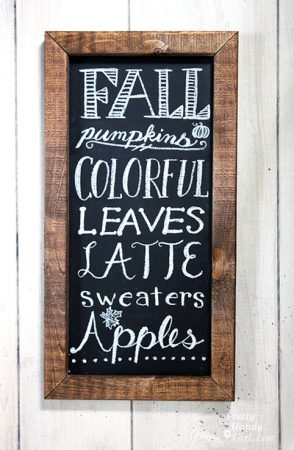 FALL
pumpkins
COLORFUL
LEAVES
LATTE
sweaters
Apples
Pretty
Handy
Girl.com